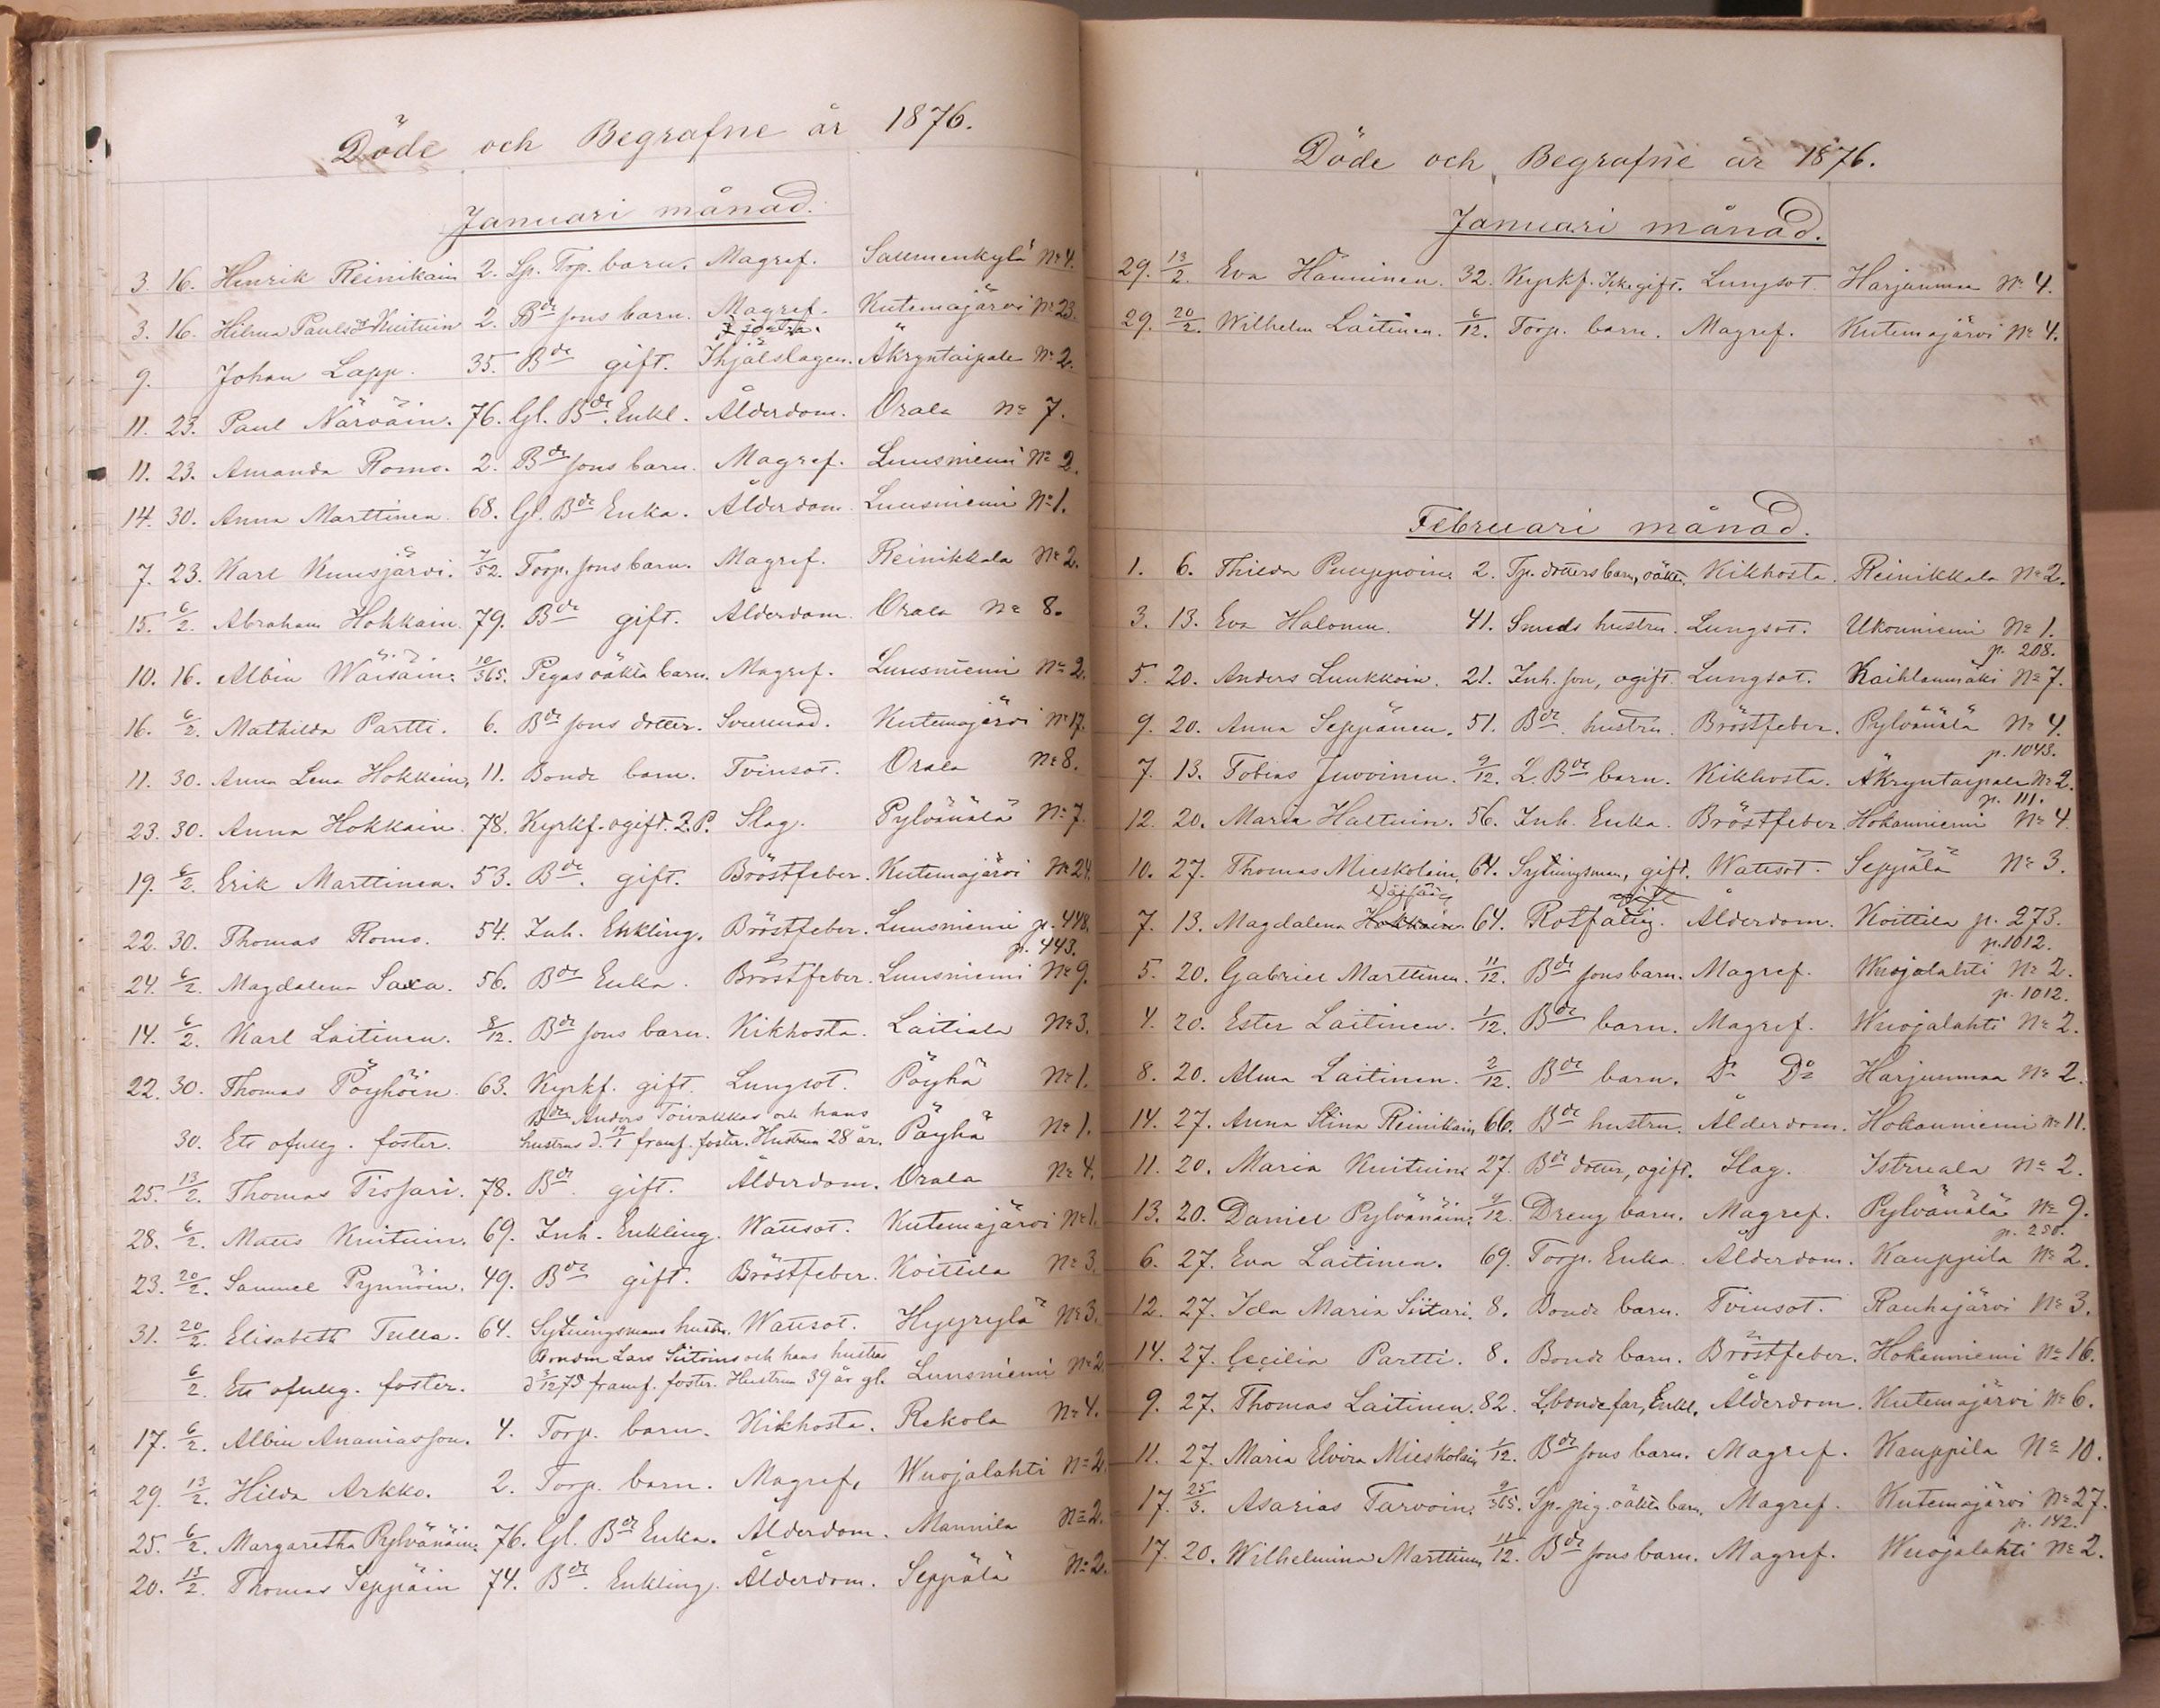 Döde och Begrafne år 1876.
Januari månad.
3. 16. Henrik Reinikain 2. Sp. Torp. barn. Magref. Saumenkylä No 4.
3. 16. Hilma Paulsd. Kuituin 2. Bde sons barn. Magref. Kutemajärvi No 23.
9. Johan Lapp. 35. Bde gift. Ihjälslagen. Äkryntaipale No 2.
11. 23. Paul Närväin. 76. Gl. Bde. Enkl. Ålderdom. Orala No 7.
11. 23. Amanda Romo. 2. Bde sons barn. Magref. Luusniemi No 2.
14. 30. Anna Marttinen. 68. Gl. Bde Enka. Ålderdom. Luusniemi No 1.
7. 23. Karl Kuusjärvi. /52. Torp. sons barn. Magref. Reinikkala No 2.
15. 6/2. Abraham Hokkain. 79. Bde gift. Ålderdom. Orala No 8.
10. 16. Albin Wäisäin. 10/365. Pigas oäkta barn. Magref. Luusniemi No 2.
16. 6/2. Mathilda Partti. 6. Bde sons dotter. Kutemajärvi No 17.
11. 30. Anna Lena Hokkain, 11. Bonde barn. Tvinsot. Orala No 8.
23. 30. Anna Hokkain. 78. Kyrkf. ogift. Slag. Pylvänälä No 7.
19. 6/2. Erik Marttinen. 53. Bde. gift. Bröstfeber. Kutemajärvi No 24.
22. 30. Thomas Romo. 54. Inh. Enkling. Bröstfeber. Luusniemi p. 448.
p. 443.
24. 6/2. Magdalena Saxa. 56. Bde Enka. Bröstfeber. Luusniemi No 9.
14. 6/2. Karl Laitinen. 8/12. Bde sons barn. Kikhosta. Laitiala No 3.
22. 30. Thomas Pöyhöin. 63. Kyrkf. gift. Lungsot. Pöyhä No 1.
Bde Anders Toivakkas och hans
30. Ett ofullg. foster. hustrus d. 19/1 framf. foster. Hustrun 28 år. Pöyhä No 1.
25. 13/2. Thomas Tissari. 78. Bde. gift. Ålderdom. Orala No 4.
28. 6/2. Matts Kuituin. 69. Inh. Enkling. Wattsot. Kutemajärvi No 1.
23. 20/2. Samuel Pynnöin. 49. Bde gift. Bröstfeber. Koittila No 3.
31. 20/2. Elisabeth Tulla. 64. Sytningsmans hustru. Wattsot. Hyyrylä No 3.
Bonden Lars Siitoins och hans hustrus
6/2. Ett ofullg. foster. d /12 75 framf. foster. Hustrun 39 år gl. Luusniemi No 2
17. 6/2. Albin Ananiasson. 4. Torp. barn. Kikhosta. Rekola No 4.
29. 13/2. Hilda Arkko. 2. Torp. barn. Magref. Wuojalahti No 2.
25. 6/2. Margaretha Pylvänäin. 76. Gl. Bde Enka. Ålderdom. Mannila No 2.
20. 13/2. Thomas Seppäin 74. Bde. Enkling. Ålderdom. Seppälä No 2.
Döde och Begrafne år 1876.
Januari månad.
29. 13/2. Eva Hänninen. 32. Kyrkf. Lungsot. Harjunmaa No 4.
29. 20/2. Wilhelm Laitinen. 6/12. Torp. barn. Magref. Kutemajärvi No 4.
Februari månad.
1. 6. Thilda Pulppoin. 2. Tp. dotters barn, oäkta. Kikhosta. Reinikkala No 2.
3. 13. Eva Halonen. 41. Smeds hustru. Lungsot. Ukonniemi No 1.
p. 208.
5. 20. Anders Luukkoin. 21. Inh. son, ogift. Lungsot. Kaihlanmäki No 7.
9. 20. Anna Seppänen. 51. Bde. hustru. Bröstfeber. Pylvänälä No 4.
p. 1043.
7. 13. Tobias Juvoinen. 9/12. L. Bde barn. Kikhosta. Äkryntaipale No 2.
p. 111.
12. 20. Maria Haltuin. 56. Inh. Enka. Bröstfeber. Hokanniemi No 4.
10. 27. Thomas Mieskolain. 64. Sytningsman, gift. Wattsot. Seppälä No 3.
7. 13. Magdalena Hokkain. 64. Rotfattig. Ålderdom. Koittila p. 273.
p. 1012.
5. 20. Gabriel Marttinen. 11/12. Bde sons barn. Magref. Wuojalahti No 2.
p. 1012.
4. 20. Ester Laitinen. 1/12. Bde barn. Magref. Wuojalahti No 2.
8. 20. Alma Laitinen. 2/12. Bde barn. Do Do Harjunmaa No 2.
14. 27. Anna Stina Reinikain 66. Bde hustru. Ålderdom. Hokanniemi No 11.
11. 20. Maria Kuituin 27. Bde dotter, ogift. Slag. Istruala No 2.
13. 20. Daniel Pylvänäin. 9/12. Dreng barn. Magref. Pylvänälä No 9.
p. 250.
6. 27. Eva Laitinen. 69. Torp. Enka. Ålderdom. Kauppila No 2.
12. 27. Ida Maria Siitari. 8. Bonde barn. Tvinsot. Rauhajärvi No 3.
14. 27. Cecilia Partti. 8. Bonde barn. Bröstfeber. Hokanniemi No 16.
9. 27. Thomas Laitinen. 82. L. bonde far, Enkl. Ålderdom. Kutemajärvi No 6.
11. 27. Maria Elvira Mieskolain 1/12. Bde sons barn. Magref. Kauppila No 10.
17. 25/3. Asarias Tarvoin. 9/365. Sp. pig. oäkta barn. Magref. Kutemajärvi No 27.
p. 142.
17. 20. Wilhelmina Marttinen 11/12. Bde sons barn. Magref. Wuojalahti No 2.